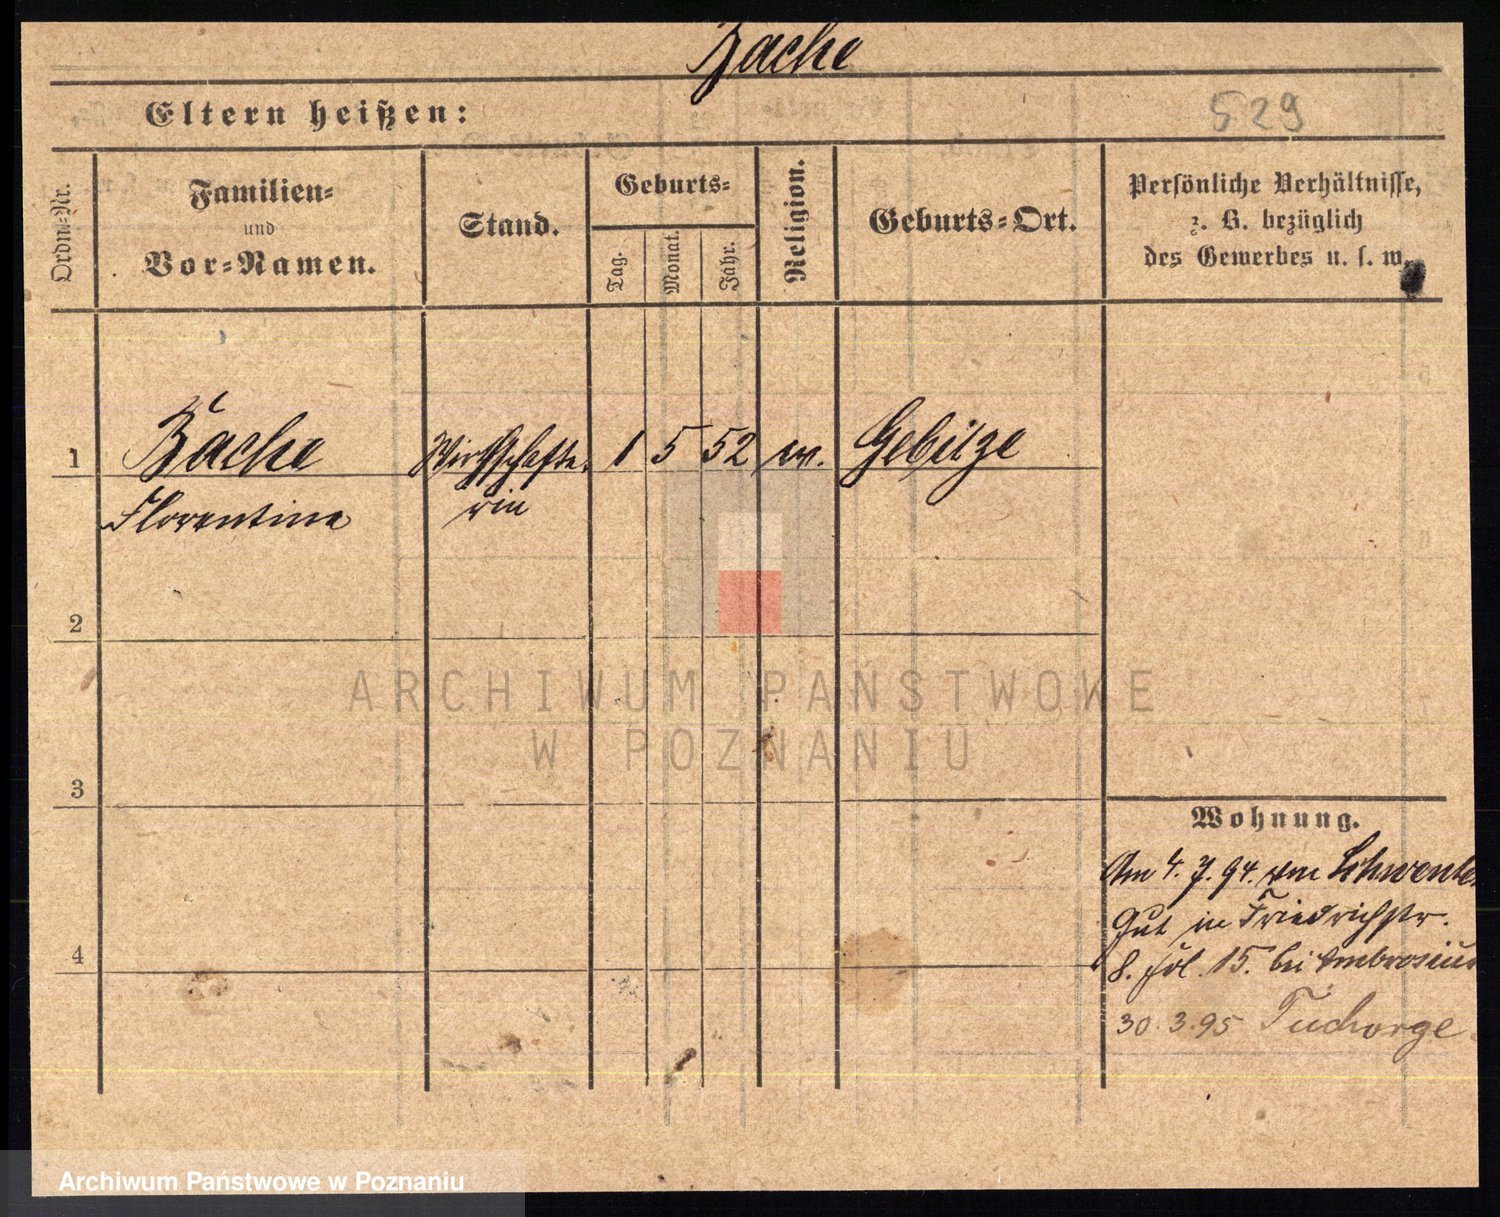 Zache
Eltern heißen:
529
Ordn.-Nr.
Familien-
und
Vor-Namen.
Stand.
Geburts-
Tag.
Monat.
Jahr.
Religion.
Geburts-Ort.
Persönliche Verhältnisse,
z. B. bezüglich
des Gewerbes u. s. w.
1
Zache
Wirthschafte-
1
5
52
ev.
Gebitze
Florentine
rin
2
ARCHIWUM PAŃSTWOWE
W POZNANIU
3
Wohnung.
Am 4. 7. 94. von
Gut in Friedrichstr.
8. Jul. 15. bei Ambrosius
4
30. 3. 95 Tuchorge
Archiwum Państwowe w Poznaniu